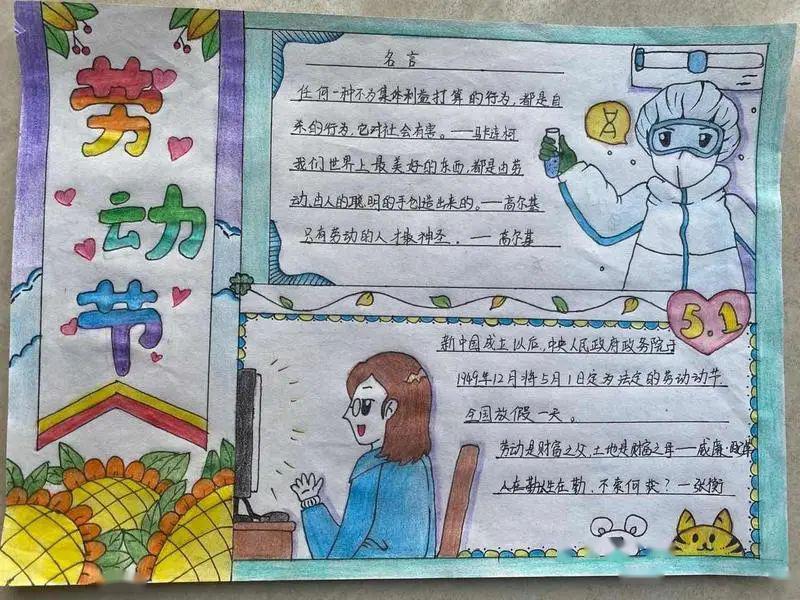 劳动节
名言
任何一种不为集体利益打算的行为,都是自
杀的行为,它对社会有害。——马卡连柯
我们世界上最美好的东西,都是由劳
动、由人的聪明的手创造出来的。——高尔基
只有劳动的人才最神圣。——高尔基
5.1
新中国成立以后,中央人民政府政务院于
1949年12月将5月1日定为法定的劳动节.
全国放假一天。
劳动是财富之父,土地是财富之母——威廉·配第
人生在勤,不索何获?—张衡